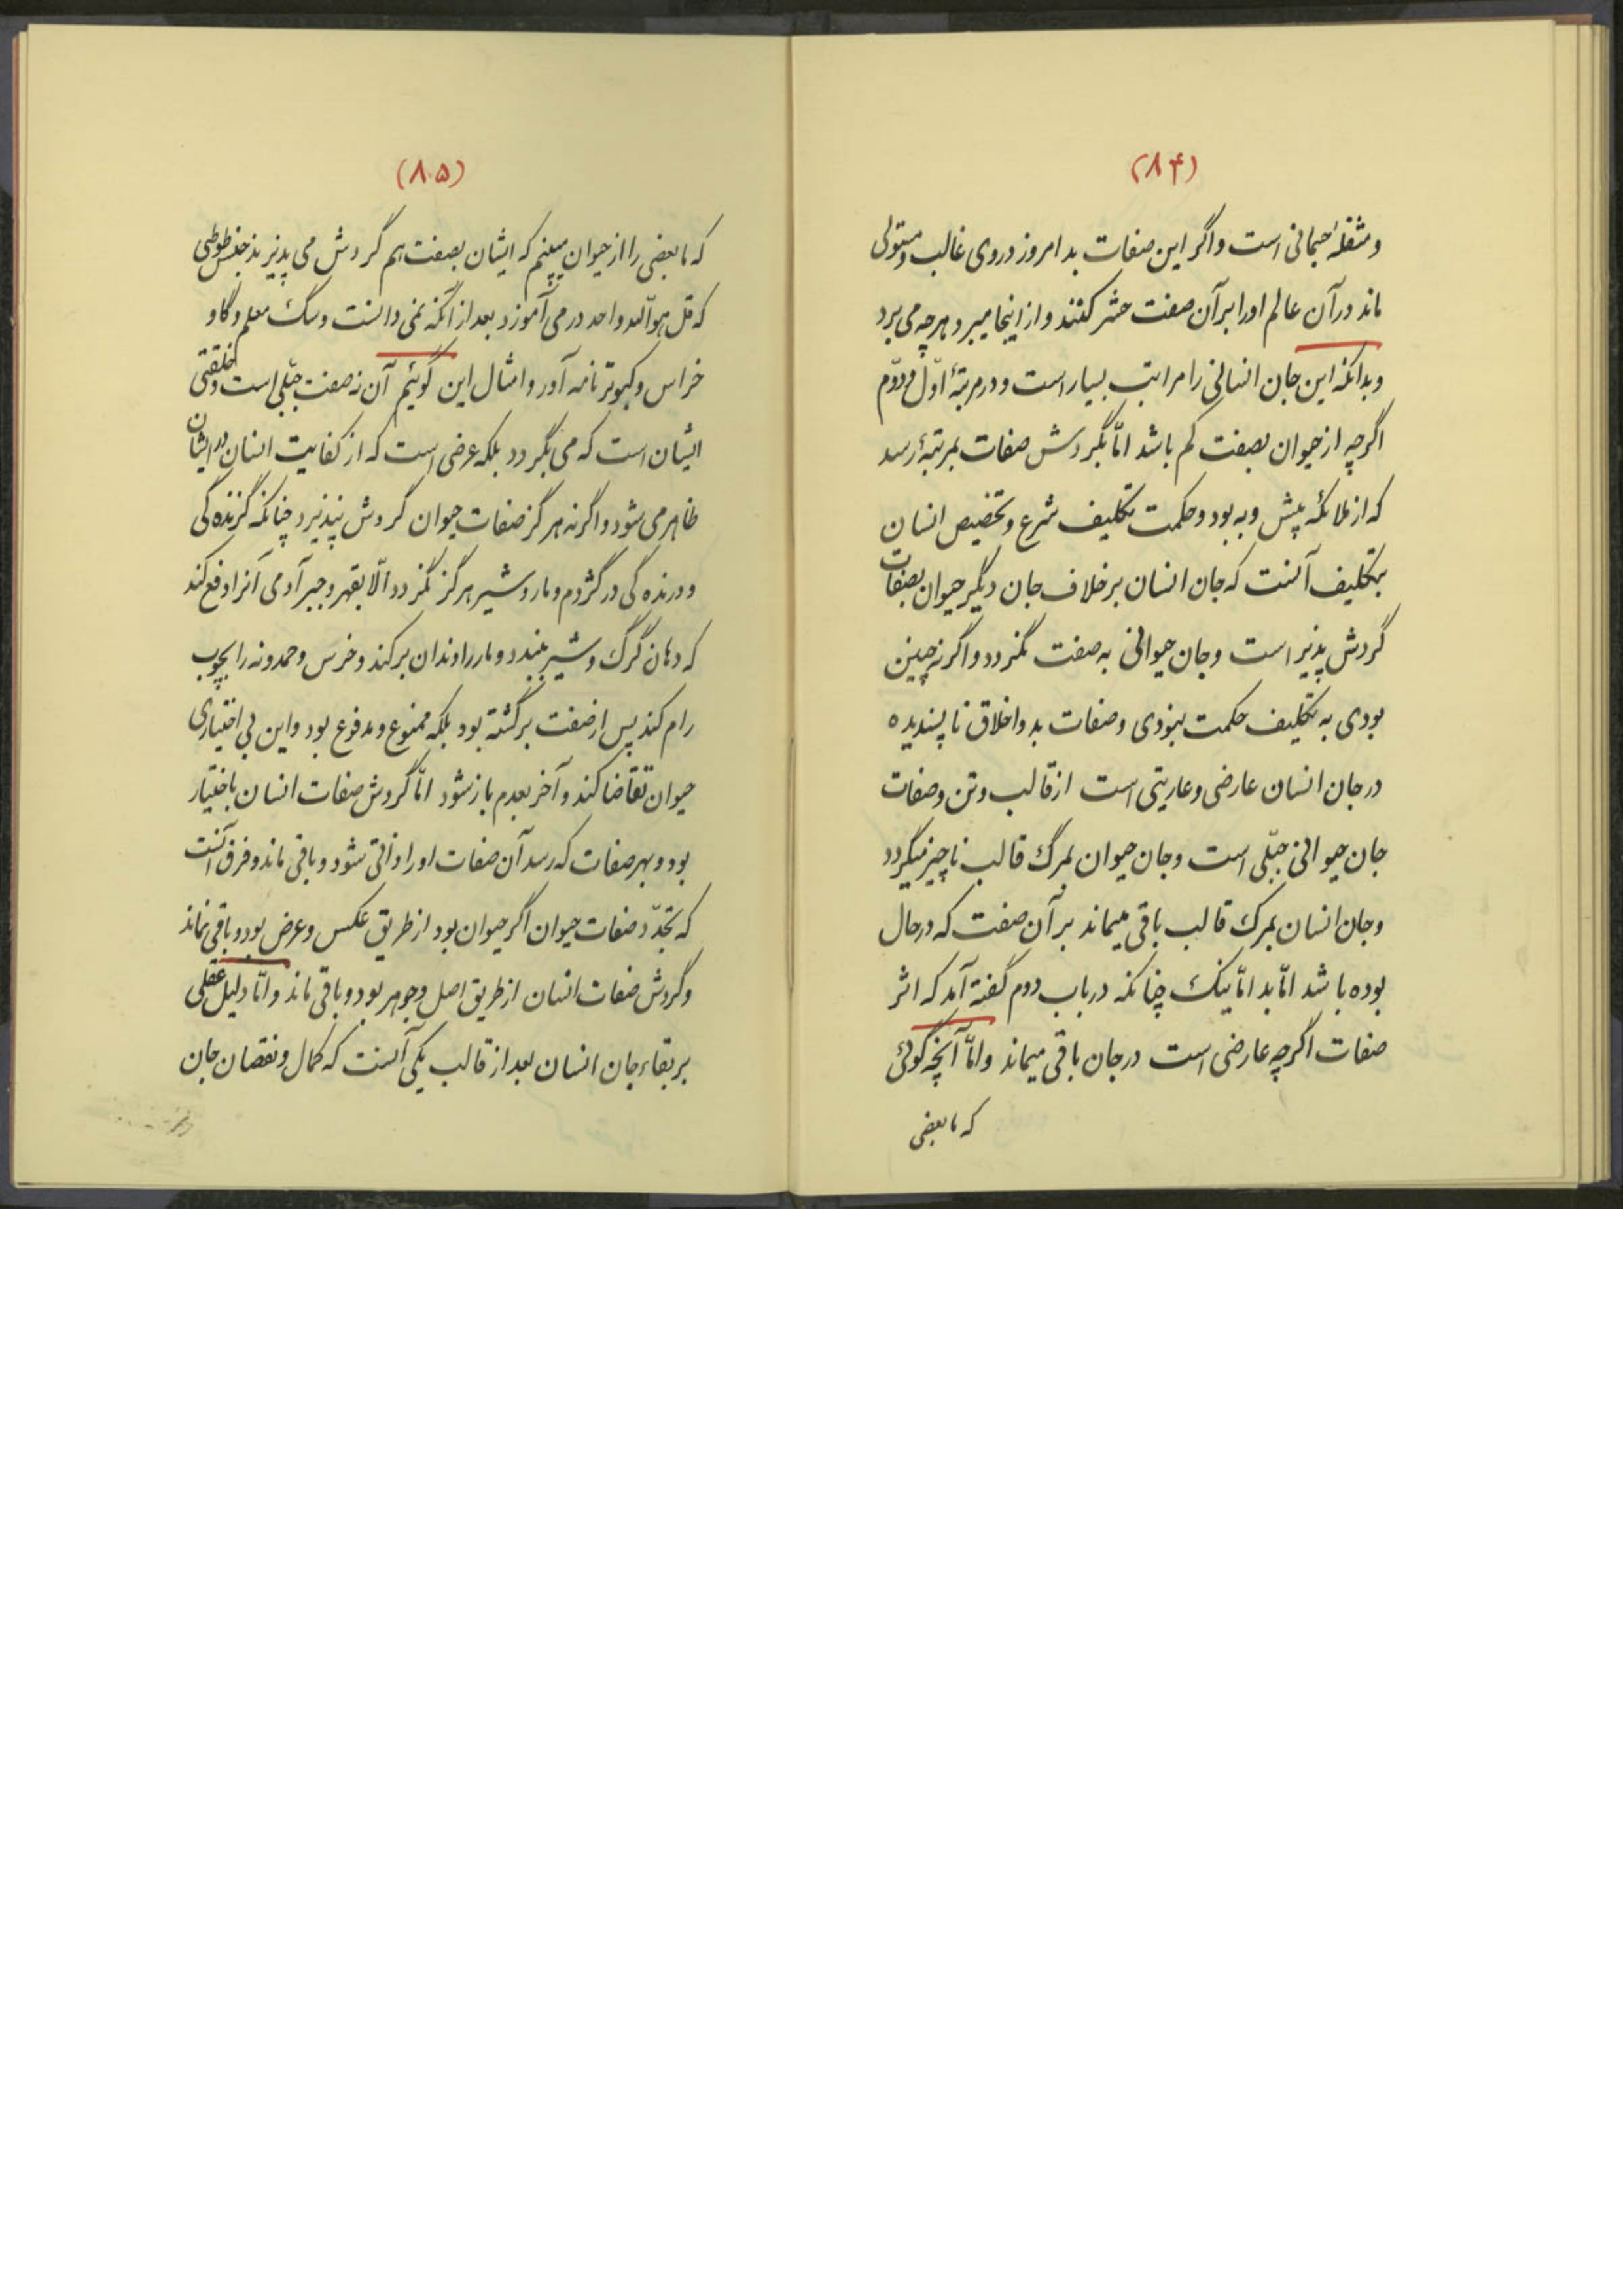 (۸۴)
و مشغلهٔ جسمانی است و اگر این صفات بد امروز در وی غالب و مستولی
ماند در آن عالم اورا بر آن صفت حشر کنند و از اینجا میبرد هرچه می برد
و بدانکه این جان انسانی را مراتب بسیار است و در مرتبهٔ اوّل و دوّم
اگرچه از حیوان بصفت کم باشد امّا بگردش صفات بمرتبهٔ رسد
که از ملائکه پیش و به بود و حکمت تکلیف شرع و تخصیص انسان
بتکلیف آنست که جان انسان بر خلاف جان دیگر حیوان بصفات
گردش پذیر است و جان حیوانی به صفت نگردد و اگر نه چنین
بودی به تکلیف حکمت نبودی و صفات بد و اخلاق ناپسندیده
در جان انسان عارضی و عاریتی است از قالب و تن و صفات
جان حیوانی جبّلی است و جان حیوان بمرگ قالب ناچیز میگردد
و جان انسان بمرگ قالب باقی میماند بر آن صفت که در حال
بوده باشد امّا بد امّا نیک چنانکه در باب دوم گفته آمد که اثر
صفات اگرچه عارضی است در جان باقی میماند و امّا آنچه گوئی
که ما بعضی
(۸۵)
که ما بعضی را از حیوان می‌بینیم که ایشان بصفت هم گردش می پذیرند چون طوطی
که قل هو الله واحد در می آموزد بعد از آنکه نمی دانست و سگ معلم و گاو
خراس و کبوتر نامه آور و امثال این گوئیم آن نه صفت جبّلی است و خلقتی
ایشان است که می بگردد بلکه عرضی است که از کفایت انسان در ایشان
ظاهر می شود و اگرنه هرگز صفات حیوان گردش نپذیرد چنانکه گزنده گی
و درنده گی در گژدم و مار و شیر هرگز نگردد الّا بقهر و جبر آدمی آنرا دفع کند
که دهان گرگ و شیر ببندد و مار را دندان برکند و خرس و حمدونه را بچوب
رام کند پس از صفت برگشته بود بلکه ممنوع و مدفوع بود و این بی اختیاری
حیوان تقاضا کند و آخر بعدم باز شود امّا گردش صفات انسان باختیار
بود و بهر صفات که رسد آن صفات اورا ذاتی شود و باقی ماند و فرق آنست
که تجدّد صفات حیوان اگر حیوان بود از طریق عکس و عرض بود و باقی نماند
و گردش صفات انسان از طریق اصل و جوهر بود و باقی ماند و امّا دلیل عقلی
بر بقاء جان انسان بعد از قالب یکی آنست که کمال و نقصان جان